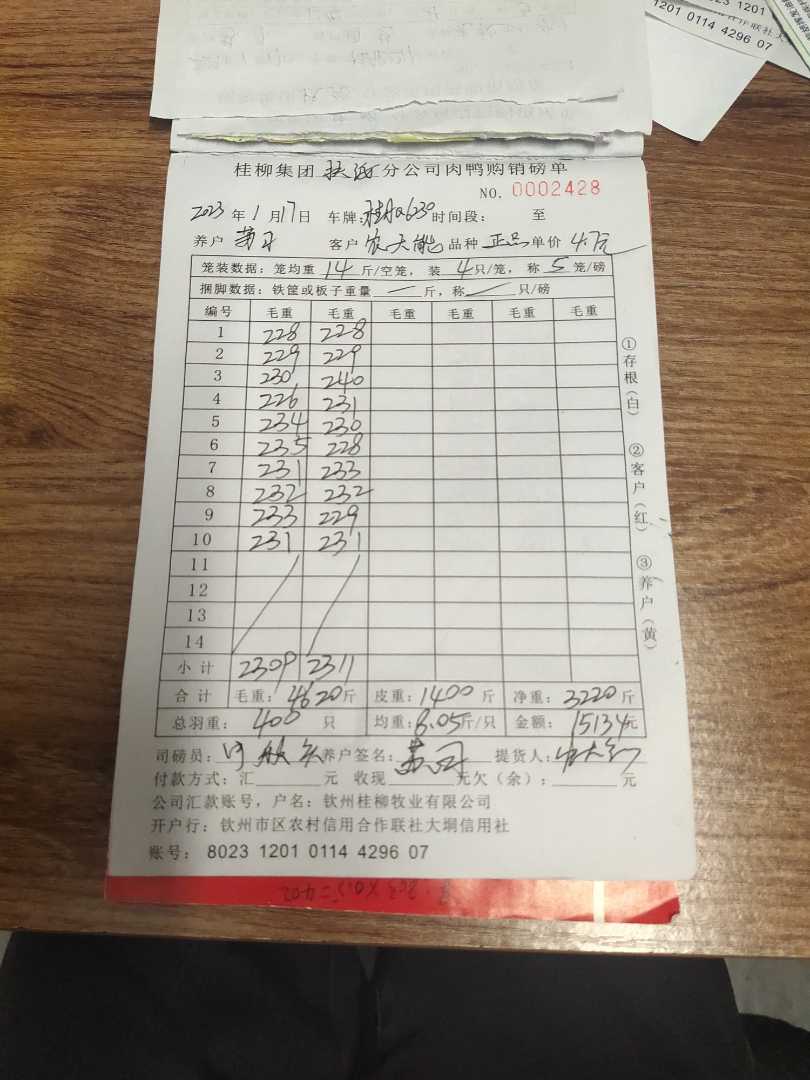 桂柳集团 分公司肉鸭购销磅单
NO. 0002428
2023 年 1 月 17 日 车牌: 时间段: 至
养户 客户 农天能 品种 正品 单价 4.7元
笼装数据: 笼均重 14 斤/空笼, 装 4 只/笼, 称 5 笼/磅
捆脚数据: 铁筐或板子重量 — 斤, 称 — 只/磅
编号 毛重 毛重 毛重 毛重 毛重 毛重
1 228 228
2 229 229
3 230 240
4 226 231
5 234 230
6 235 228
7 231 233
8 232 232
9 233 229
10 231 231
11
12
13
14
小计 2309 2311
合计 毛重: 4620 斤 皮重: 1400 斤 净重: 3220 斤
总羽重: 400 只 均重: 8.05斤/只 金额: 15134元
司磅员: 养户签名: 提货人:
付款方式: 汇 元 收现 元欠(余): 元
公司汇款账号, 户名: 钦州桂柳牧业有限公司
开户行: 钦州市区农村信用合作联社大垌信用社
账号: 8023 1201 0114 4296 07
①存根(白)
②客户(红)
③养户(黄)
1201 0114 4296 07